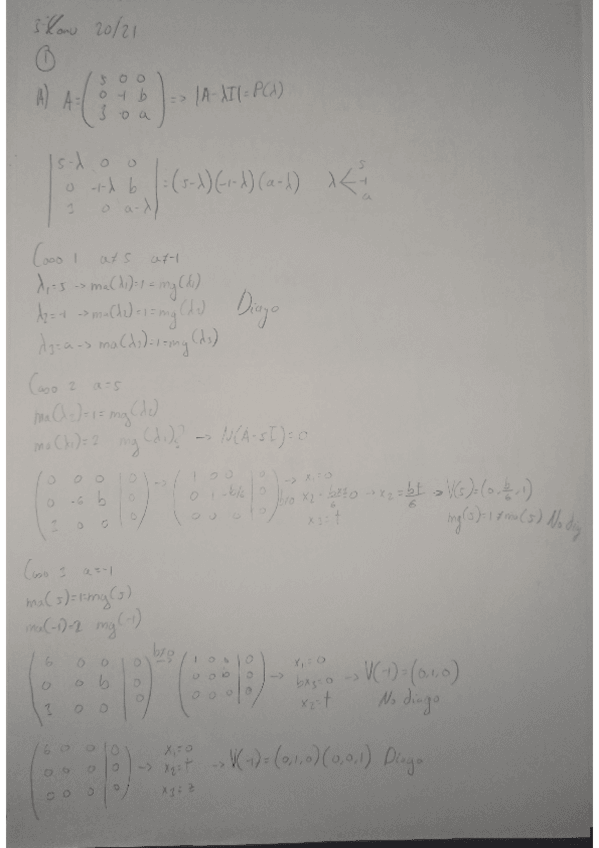 20/21
①
A) A = (5 0 0 / 0 -1 b / 3 0 a) => |A-λI| = P(λ)
|5-λ 0 0 / 0 -1-λ b / 3 0 a-λ| = (5-λ)(-1-λ)(a-λ) λ < 5 -1 a
Caso 1 a≠5 a≠-1
λ₁=5 → ma(λ₁)=1=mg(λ₁)
λ₂=-1 → ma(λ₂)=1=mg(λ₂) Diago
λ₃=a → ma(λ₃)=1=mg(λ₃)
Caso 2 a=5
ma(λ₂)=1=mg(λ₂)
ma(λ₁)=2 mg(λ₁)? → N(A-5I)=0
(0 0 0 | 0 / 0 -6 b | 0 / 3 0 0 | 0) → (1 0 0 | 0 / 0 1 -b/6 | 0 / 0 0 0 | 0) → x=0 x₂ - bx₃/6=0 x₃=t → x₂=bt/6 → V(5)=(0, b/6, 1)
mg(5)=1≠ma(5) No diag
Caso 3 a=-1
ma(5)=1=mg(5)
ma(-1)=2 mg(-1)
(6 0 0 | 0 / 0 0 b | 0 / 3 0 0 | 0) b≠0 → (1 0 0 | 0 / 0 0 b | 0 / 0 0 0 | 0) → x₁=0 bx₃=0 x₂=t → V(-1)=(0,1,0)
No diago
(6 0 0 | 0 / 0 0 0 | 0 / 0 0 0 | 0) → x₁=0 x₂=t x₃=z → V(-1)=(0,1,0)(0,0,1) Diago